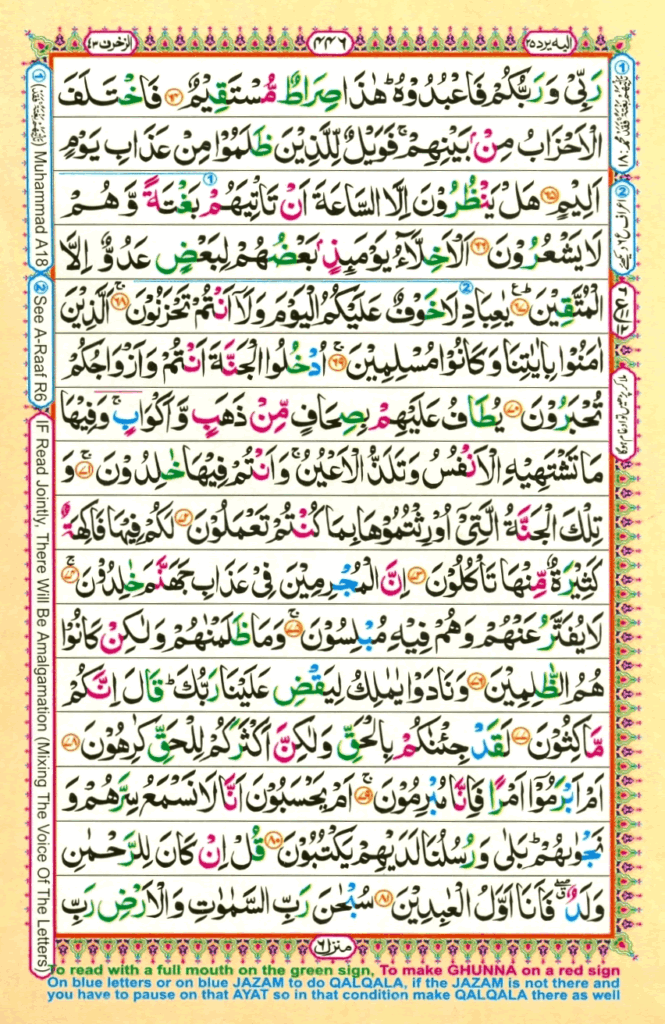 الزخرف ٤٣
٤٤٦
اليه يرد ٢٥
رَبِّىْ وَرَبُّكُمْ فَاعْبُدُوْهُ ؕ هٰذَا صِرَاطٌ مُّسْتَقِيْمٌ ﴿۶۴﴾ فَاخْتَلَفَ
الْاَحْزَابُ مِنْۢ بَيْنِهِمْ ۚ فَوَيْلٌ لِّلَّذِيْنَ ظَلَمُوْا مِنْ عَذَابِ يَوْمٍ
اَلِيْمٍ ﴿۶۵﴾ هَلْ يَنْظُرُوْنَ اِلَّا السَّاعَةَ اَنْ تَاْتِيَهُمْ بَغْتَةً وَّهُمْ
لَا يَشْعُرُوْنَ ﴿۶۶﴾ اَلْاَخِلَّآءُ يَوْمَىِٕذٍۭ بَعْضُهُمْ لِبَعْضٍ عَدُوٌّ اِلَّا
الْمُتَّقِيْنَ ﴿۶۷﴾ يٰعِبَادِ لَا خَوْفٌ عَلَيْكُمُ الْيَوْمَ وَلَاۤ اَنْتُمْ تَحْزَنُوْنَ ﴿۶۸﴾ اَلَّذِيْنَ
اٰمَنُوْا بِاٰيٰتِنَا وَكَانُوْا مُسْلِمِيْنَ ﴿۶۹﴾ اُدْخُلُوا الْجَنَّةَ اَنْتُمْ وَاَزْوَاجُكُمْ
تُحْبَرُوْنَ ﴿۷۰﴾ يُطَافُ عَلَيْهِمْ بِصِحَافٍ مِّنْ ذَهَبٍ وَّاَكْوَابٍ ۚ وَفِيْهَا
مَا تَشْتَهِيْهِ الْاَنْفُسُ وَتَلَذُّ الْاَعْيُنُ ۚ وَاَنْتُمْ فِيْهَا خٰلِدُوْنَ ﴿۷۱﴾ وَ
تِلْكَ الْجَنَّةُ الَّتِىْۤ اُوْرِثْتُمُوْهَا بِمَا كُنْتُمْ تَعْمَلُوْنَ ﴿۷۲﴾ لَكُمْ فِيْهَا فَاكِهَةٌ
كَثِيْرَةٌ مِّنْهَا تَاْكُلُوْنَ ﴿۷۳﴾ اِنَّ الْمُجْرِمِيْنَ فِىْ عَذَابِ جَهَنَّمَ خٰلِدُوْنَ ﴿۷۴﴾
لَا يُفَتَّرُ عَنْهُمْ وَهُمْ فِيْهِ مُبْلِسُوْنَ ﴿۷۵﴾ وَمَا ظَلَمْنٰهُمْ وَلٰكِنْ كَانُوْا
هُمُ الظّٰلِمِيْنَ ﴿۷۶﴾ وَنَادَوْا يٰمٰلِكُ لِيَقْضِ عَلَيْنَا رَبُّكَ ؕ قَالَ اِنَّكُمْ
مَّاكِثُوْنَ ﴿۷۷﴾ لَقَدْ جِئْنٰكُمْ بِالْحَقِّ وَلٰكِنَّ اَكْثَرَكُمْ لِلْحَقِّ كٰرِهُوْنَ ﴿۷۸﴾
اَمْ اَبْرَمُوْۤا اَمْرًا فَاِنَّا مُبْرِمُوْنَ ﴿۷۹﴾ اَمْ يَحْسَبُوْنَ اَنَّا لَا نَسْمَعُ سِرَّهُمْ وَ
نَجْوٰىهُمْ ؕ بَلٰى وَرُسُلُنَا لَدَيْهِمْ يَكْتُبُوْنَ ﴿۸۰﴾ قُلْ اِنْ كَانَ لِلرَّحْمٰنِ
وَلَدٌ ۖ فَاَنَا اَوَّلُ الْعٰبِدِيْنَ ﴿۸۱﴾ سُبْحٰنَ رَبِّ السَّمٰوٰتِ وَالْاَرْضِ رَبِّ
منزل ٦
① Muhammad A18
② See A-Raaf R6
IF Read Jointly, There Will Be Amalgamation (Mixing The Voice Of The Letters)
To read with a full mouth on the green sign, To make GHUNNA on a red sign
On blue letters or on blue JAZAM to do QALQALA, if the JAZAM is not there and
you have to pause on that AYAT so in that condition make QALQALA there as well